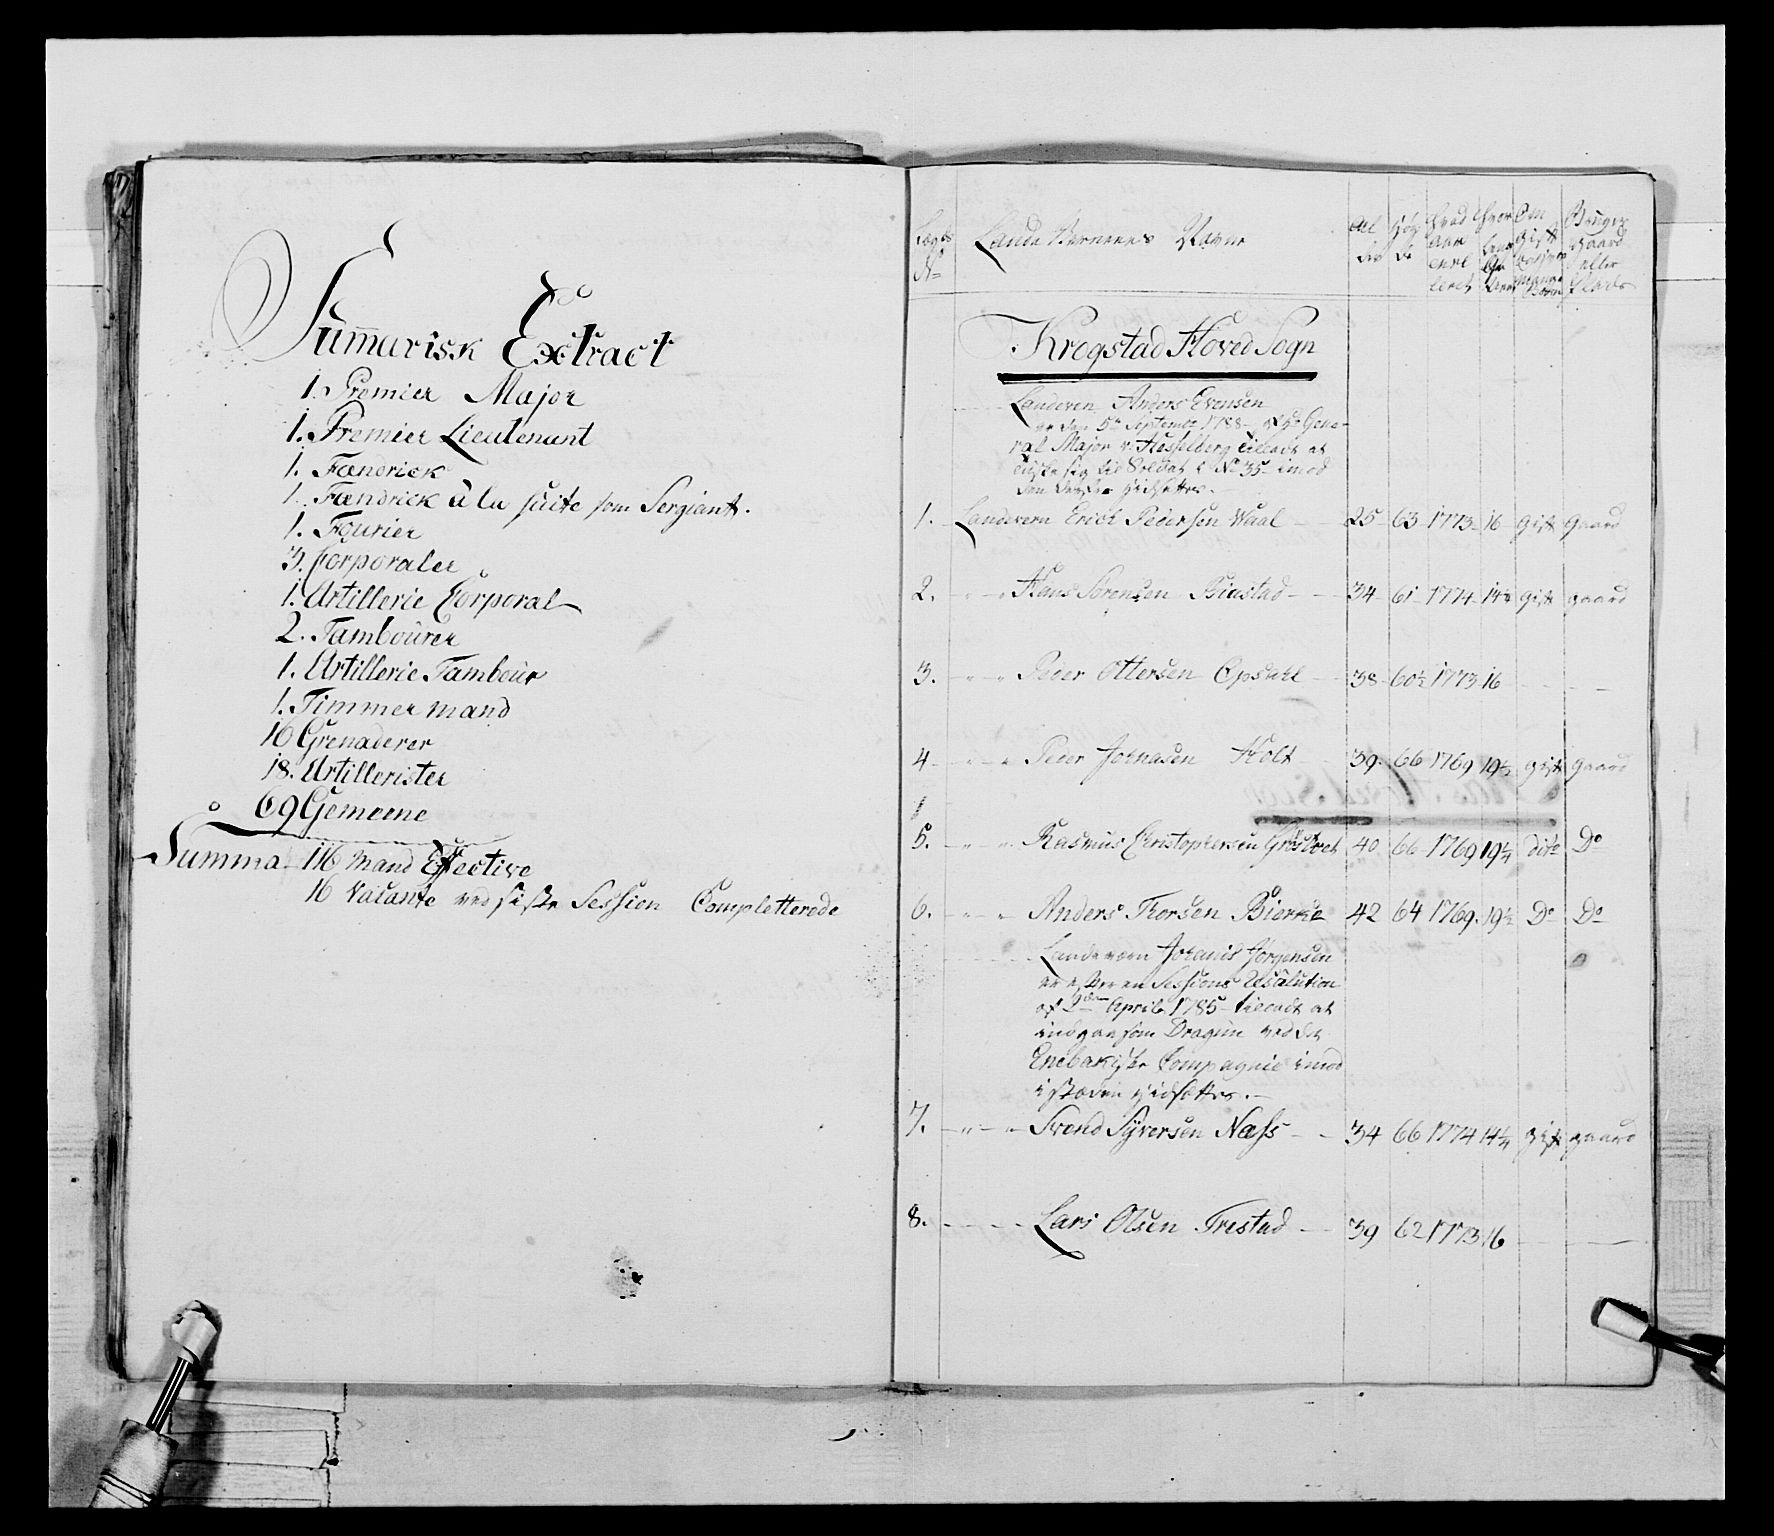 Summarisk Extract
1. Premier Major
1. Premier Lieutenant
1. Fændrick
1. Fændrick à la suite som Sergiant.
1. Fourier
3. Corporaler
1. Artillerie Corporal
2. Tambourer
1. Artillerie Tambour
1. Timmermand
16 Grenaderer
18. Artillerister
69 Gemeene
Summa 116 Mand Effective
16 Vacante ved siste Session Completterede
Lægs No Lande Vernenes Navne Al der Høy de Hvad Aar enrolleret Hvor længe Om Gift Bruger gaard eller Plads
Krogstad Hoved Sogn
Landevern Anders Evensen
er den 5te Septembr 1788 af Hr Gene-
ral Major v: Hesselberg tilladt at
til Soldat No 35 imod
den derfra Hidsættes.
1. Landevern Erich Pedersen Waal 25 63 1773 16 Gift Gaard
2. " " Hans Sørensen Biustad 34 61 1774 14¼ Gift gaard
3. " " Peder Ottersen Opsahl 38 60½ 1773 16
4 " " Peder Johnasen Holt 39 66 1769 19½ gift gaard
5. " " Rasmus Christophersen 40 66 1769 19¼ dito Do
6. " " Anders Thorsen Bierke 42 64 1769 19½ Do Do
Landevern Johanis Jørgensen
er efter en Sessions Resolution
af 2den April 1785 tilladt at
indgaae som Dragun ved det
Enebakiske Compagnie imod
i stæden Hidsættes.
7. " " Svend Syversen Næss 34 66 1774 14¼ gift gaard
8. Lars Olsen Trestad 39 62 1773 16